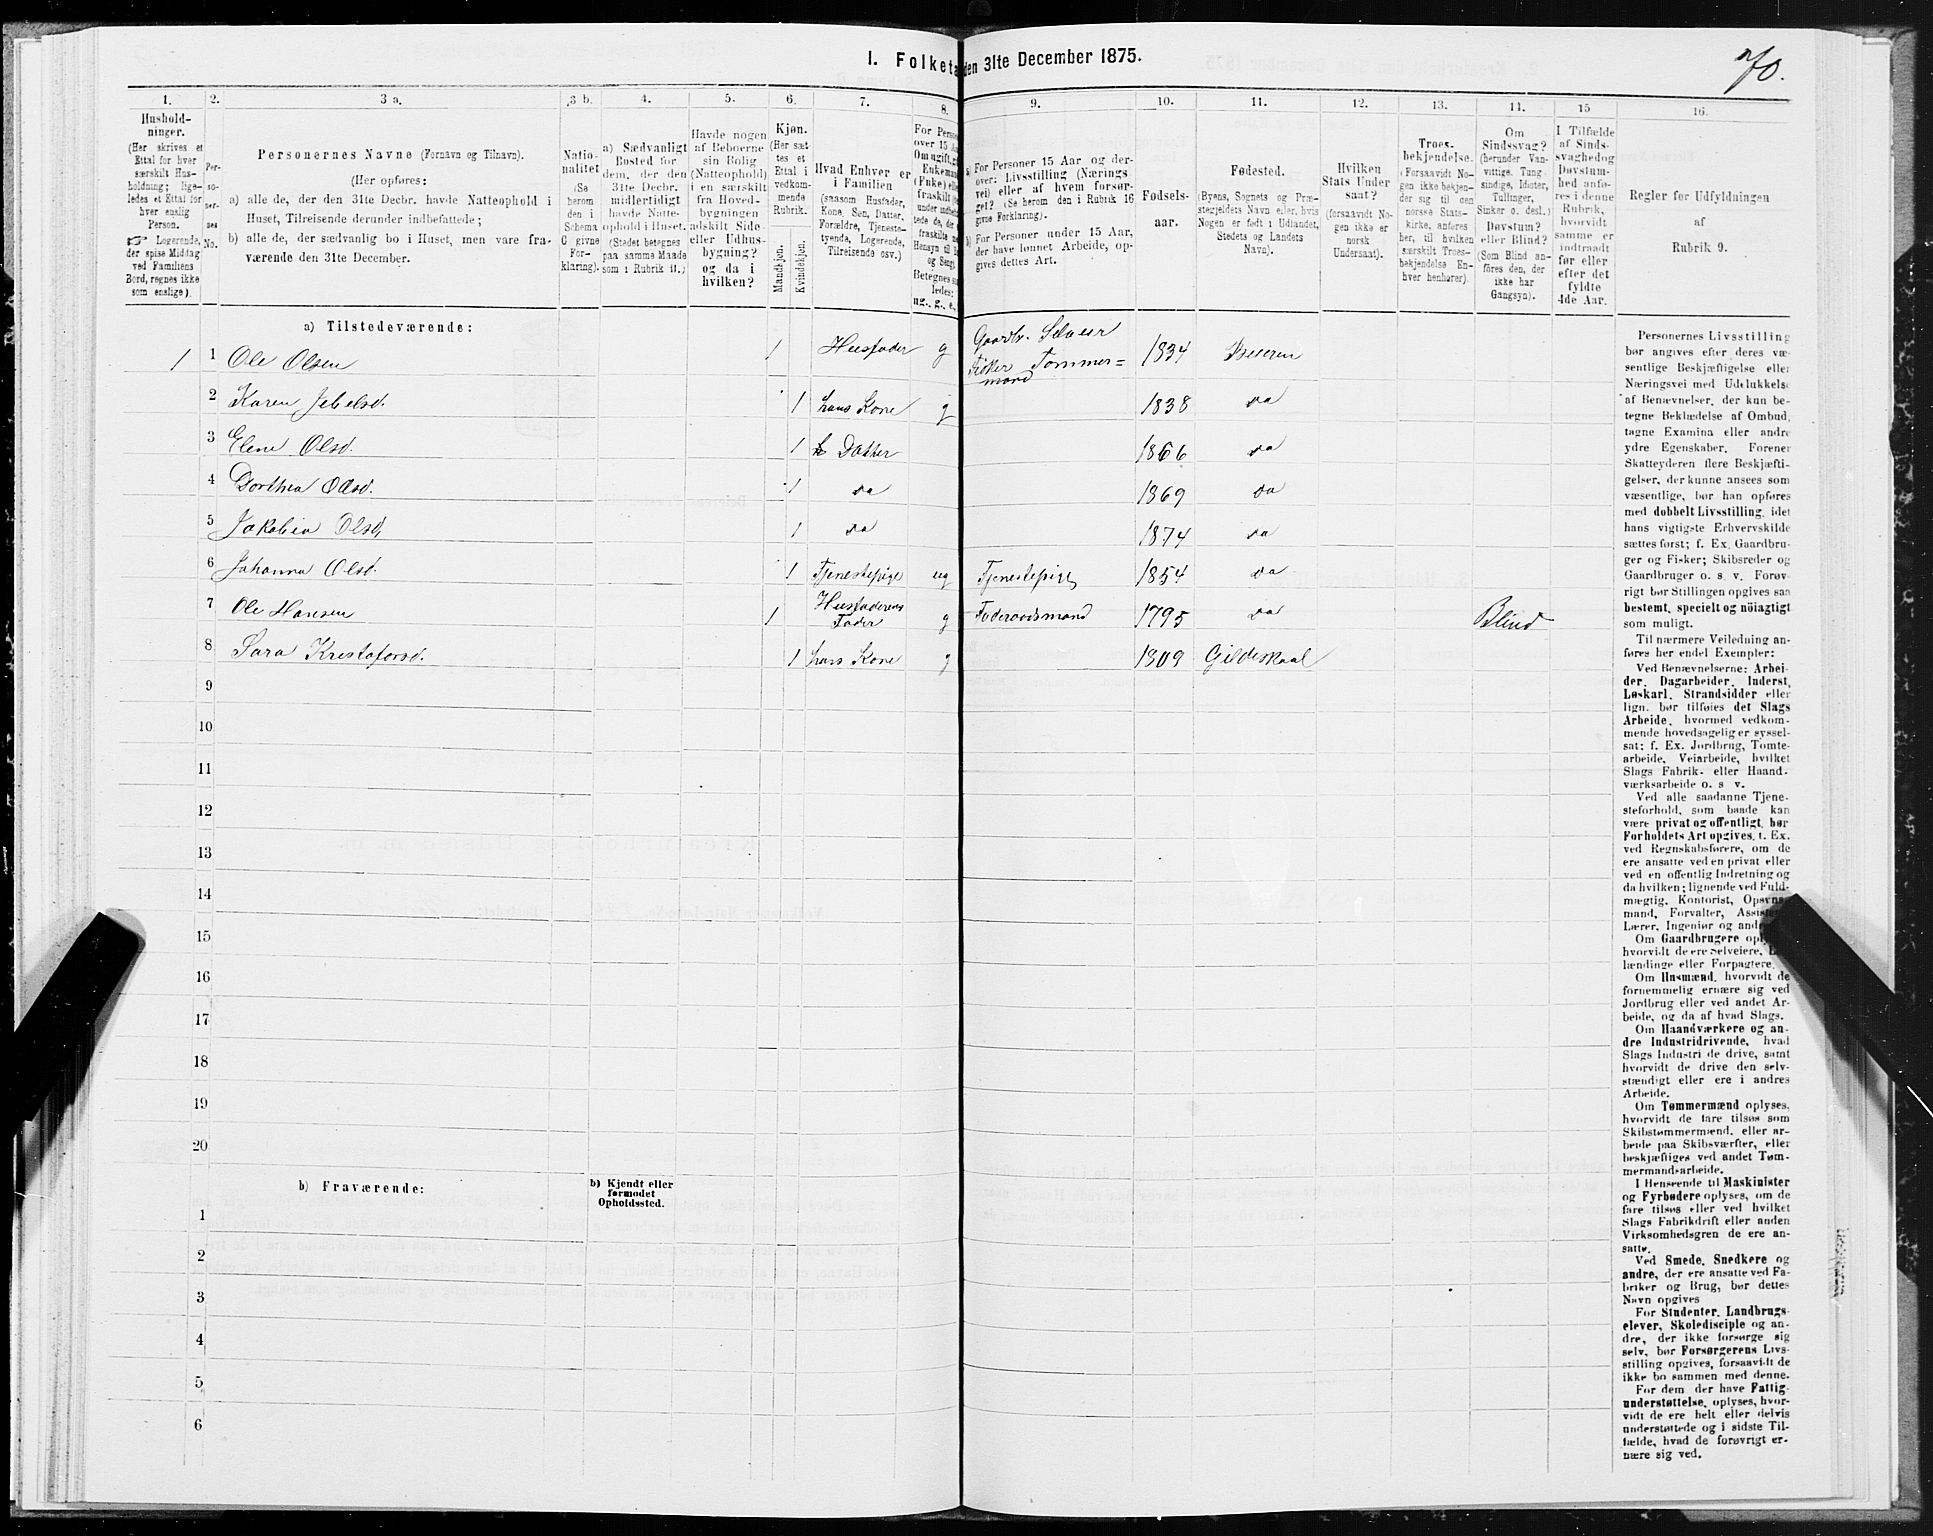 I. Folketa
den 31te December 1875.
70.
1.
2.
3 a.
3 b.
4.
5.
6.
7.
8.
9.
10.
11.
12.
13.
14.
15
16.
Hushold-
ninger.
(Her skrives et
Ettal for hver
særskilt Hus-
holdning; lige-
ledes et Ettal for
hver enslig
Person.
☞ Logerende,
der spise Middag
ved Familiens
Bord, regnes ikke
som enslige).
Per-
so-
ner-
nes
No.
Personernes Navne (Fornavn og Tilnavn).
(Her opføres:
a) alle de, der den 31te Decbr. havde Natteophold i
Huset, Tilreisende derunder indbefattede;
b) alle de, der sædvanlig bo i Huset, men vare fra-
værende den 31te December.
Natio-
nalitet
(Se
herom
den i
Schema
C givne
For-
klaring).
a) Sædvanligt
Bosted for
dem, der den
31te Decbr.
midlertidigt
havde Natte-
ophold i Huset.
(Stedet betegnes
paa samme Maade
som i Rubrik 11.)
Havde nogen
af Beboerne
sin Bolig
(Natteophold)
i en særskilt
fra Hoved-
bygningen
adskilt Side-
eller Udhus-
bygning?
og da i
hvilken?
Kjøn.
(Her sæt-
tes et
Ettal i
vedkom-
mende
Rubrik.
Mandkjøn.
Kvindekjøn.
Hvad Enhver er
i Familien
(saasom Husfader,
Kone, Søn, Datter,
Forældre, Tjeneste-
tyende, Logerende,
Tilreisende osv.).
For Perso
over 15 A
Om ugift, g
Enkeman
(Enke) ell
fraskilt
Betegnes s
ledes:
ug., g., e.,
a) For Personer 15 Aar og der-
over: Livsstilling (Nærings
vei) eller af hvem forsør-
get? (Se herom den i Rubrik 16
givne Forklaring).
b) For Personer under 15 Aar,
der have lønnet Arbeide, op-
gives dettes Art.
Fødsels-
aar.
Fødested.
(Byens, Sognets og Præ-
stegjeldets Navn eller, hvis
Nogen er født i Udlandet,
Stedets og Landets
Navn).
Hvilken
Stats Under
saat?
(forsaavidt No-
gen ikke er
norsk
Undersaat).
Troes-
bekjendelse.
(Forsaavidt No-
gen ikke bekjen-
der sig til den
norske Stats-
kirke, anføres
her, til hvilken
særskilt Troes-
bekjendelse En-
hver henhører).
Om
Sindssvag?
(herunder Van-
vittige, Tung-
sindige, Idioter,
Tullinger,
Sinker o. desl.)
Døvstum?
eller Blind?
(Som Blind an-
føres den, der
ikke har
Gangsyn).
I Tilfælde
af Sinds-
svaghedog
Døvstum-
hed anfø-
res i denne
Rubrik,
hvorvidt
samme er
indtraadt
før eller
efter det
fyldte
4de Aar.
Regler før Udfyldningen
af
Rubrik 9.
a) Tilstedeværende:
1 1 Ole Olsen 1 Husfader g Gaardbr. Selveier Fisker Tømmer=mand 1834 Beieren
2 Karen Jebelsd. 1 hans Kone g 1838 da
3 Elene Olsd. 1 Datter 1866 da
4 Dorthea Olsd. 1 da 1869 da
5 Jakobia Olsd. 1 da 1874 da
6 Johanna Olsd. 1 Tjenestepige ug Tjenestepige 1854 da
7 Ole Hansen 1 Husfaderens Fader g Føderaadsmand 1795 da Blind
8 Sara Kristofersd. 1 hans Kone g 1809 Gildeskaal
9
10
11
12
13
14
15
16
17
18
19
20
b) Fraværende:
b) Kjendt eller
formodet
Opholdssted.
1
2
3
4
5
6
Personernes Livsstilling
bør angives efter deres væ-
sentlige Beskjæftigelse eller
Næringsvei med Udelukkelse
af Benævnelser, der kun be-
tegne Beklædelse af Ombud,
tagne Examina eller andre
ydre Egenskaber. Forener
Skatteyderen flere Beskjæfti-
gelser, der kunne ansees som
væsentlige, bør han opføres
med dobbelt Livsstilling, idet
hans vigtigste Erhvervskilde
sættes først; f. Ex. Gaardbru-
ger og Fisker; Skibsreder og
Gaardbruger o. s. v. Forøv-
rigt bør Stillingen opgives saa
bestemt, specielt og nöiagtigt
som muligt.
Til nærmere Veiledning an-
føres her endel Exempler:
Ved Benævnelserne: Arbei-
der, Dagarbeider, Inderst,
Løskarl, Strandsidder eller
lign. bør tilføies det Slags
Arbeide, hvormed vedkom-
mende hovedsagelig er syssel-
sat: f. Ex. Jordbrug, Tomte-
arbeide, Veiarbeide, hvilket
Slags Fabrik- eller Haand-
værksarbeide o. s v.
Ved alle saadanne Tjene-
steforhold, som baade kan
være privat og offentligt, bør
Forholdets Art opgives, f. Ex.
ved Regnskabsførere, om de
ere ansatte ved en privat eller
ved en offentlig Indretning og
da hvilken; lignende ved Fuld-
mægtig, Kontorist, Opsyns-
mand, Forvalter, Assiste
Lærer, Ingeniør og and
Om Gaardbrugere opl
hvorvidt de ere Selveiere, L
lændinge eller Forpagtere.
Om Husmænd, hvorvidt de
fornemmelig ernære sig ved
Jordbrug eller ved andet Ar-
beide, og da af hvad Slags.
Om Haandværkere og an-
dre Industridrivende, hvad
Slags Industri de drive, samt
hvorvidt de drive den selv-
stændigt eller ere i andres
Arbeide.
Om Tømmermænd oplyses,
hvorvidt de fare tilsøs som
Skibstømmermænd, eller ar-
beide paa Skibsværfter, eller
beskjæftiges ved andet Tøm-
mermandsarbeide.
I Henseende til Maskinister
og Fyrbødere oplyses, om de
fare tilsøs eller ved hvilket
Slags Fabrikdrift eller anden
Virksomhedsgren de ere an-
satte.
Ved Smede, Snedkere og
andre, der ere ansatte ved Fa-
briker og Brug, bør dettes
Navn opgives
For Studenter, Landbrugs-
elever, Skoledisciple og an-
dre, der ikke forsørge sig
selv, bør Forsørgerens Livs-
stilling opgives, forsaavidt de
ikke bo sammen med denne.
For dem der have Fattig-
understøttelse, oplyses, hvor-
vidt de ere helt eller delvis
understøttede og i sidste Til-
fælde, hvad de forøvrigt er-
nære sig ved.